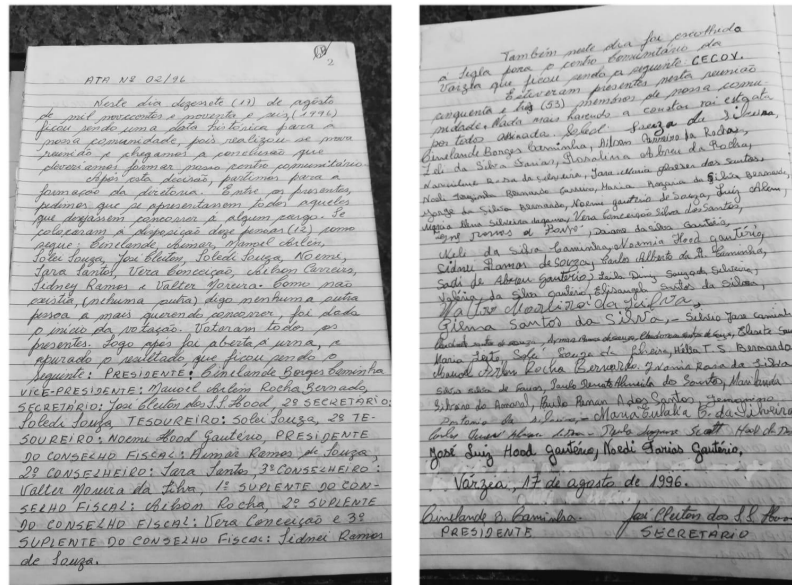 2
ATA Nº 02/96
Neste dia dezesete (17) de agosto
de mil novecentos e noventa e seis (1996)
ficou sendo uma data histórica para a
nossa comunidade, pois realizou-se nova
reunião e chegamos a conclusão que
deveríamos formar nosso centro comunitário.
Após esta decisão, partimos para a
formação da diretoria. Entre os presentes,
pedimos que se apresentassem todos aqueles
que desejassem concorrer à algum cargo. Se
colocaram a disposição doze pessoas (12) como
segue: Cinelande, Aimar, Manoel Arlém,
Solei Souza, José Cleiton, Soledi Souza, Noemi,
Iara Santos, Vera Conceição, Nelson Carreiro,
Sidney Ramos e Valter Moreira. Como não
existia, (nehuma outra) digo nenhuma outra
pessoa a mais querendo concorrer, foi dado
o início da votação. Votaram todos os
presentes. Logo após foi aberta a urna, e
apurado o resultado que ficou sendo o
seguinte: PRESIDENTE: Cinelande Borges Caminha
VICE-PRESIDENTE: Manoel Arlem Rocha Bernardo,
SECRETÁRIO: José Cleiton dos S.S. Hood, 2º SECRETÁRIO:
Soledi Souza, TESOUREIRO: Solei Souza, 2º TE-
SOUREIRO: Noemi Hood Gautério, PRESIDENTE
DO CONSELHO FISCAL: Aimar Ramos de Souza,
2º CONSELHEIRO: Iara Santos 3º CONSELHEIRO:
Valter Moreira da Silva, 1º SUPLENTE DO CON-
SELHO FISCAL: Nelson Rocha, 2º SUPLENTE
DO CONSELHO FISCAL: Vera Conceição e 3º
SUPLENTE DO CONSELHO FISCAL: Sidnei Ramos
de Souza.
Também neste dia foi escolhida
a sigla para o centro comunitário da
Várzea que ficou sendo a seguinte: CECOV.
Estiveram presentes nesta reunião
cinquenta e três (53) membros de nossa comu-
nidade. Nada mais havendo a constar vai esta ata
por todos assinada. Soledi Souza de Oliveira,
Cinelande Borges Caminha, Nilson Carreiro da Rocha,
da Silva Farias, Rosalina Abreu da Rocha,
da Silveira, Iara dos Santos,
Bernardo Carreiro, Maria da Silva Bernardo,
da Silva Bernardo, Noemi gautério de Souza, Luiz
Silveira, Vera Conceição Silva dos Santos,
da Silva Gautério,
da Silva Caminha, Noemia Hood gautério,
Sidnei Ramos de Souza, Carlos Alberto da R. Caminha,
Sadi de Abreu gautério, Souza da Silveira,
Valéria da Silva gautério, Elisangela Santos da Silva,
Valtro Moreira da Silva,
Gilma Santos da Silva, - Silvio Jara Caminha
Maria, Solei Souza de Oliveira, T. S. Bernardo
Manoel Arlem Rocha Bernardo, Rosa da Silva
de Farias, Paulo Renato Almeida do Santos,
do Amaral, Paulo Ramon A. dos Santos,
Maria Eulalia C. da Silveira
José Luiz Hood gautério, Noedi Farias Gautério,
Várzea, 17 de agosto de 1996.
Cinelande B. Caminha. José Cleiton dos S.S. Hood
PRESIDENTE SECRETÁRIO